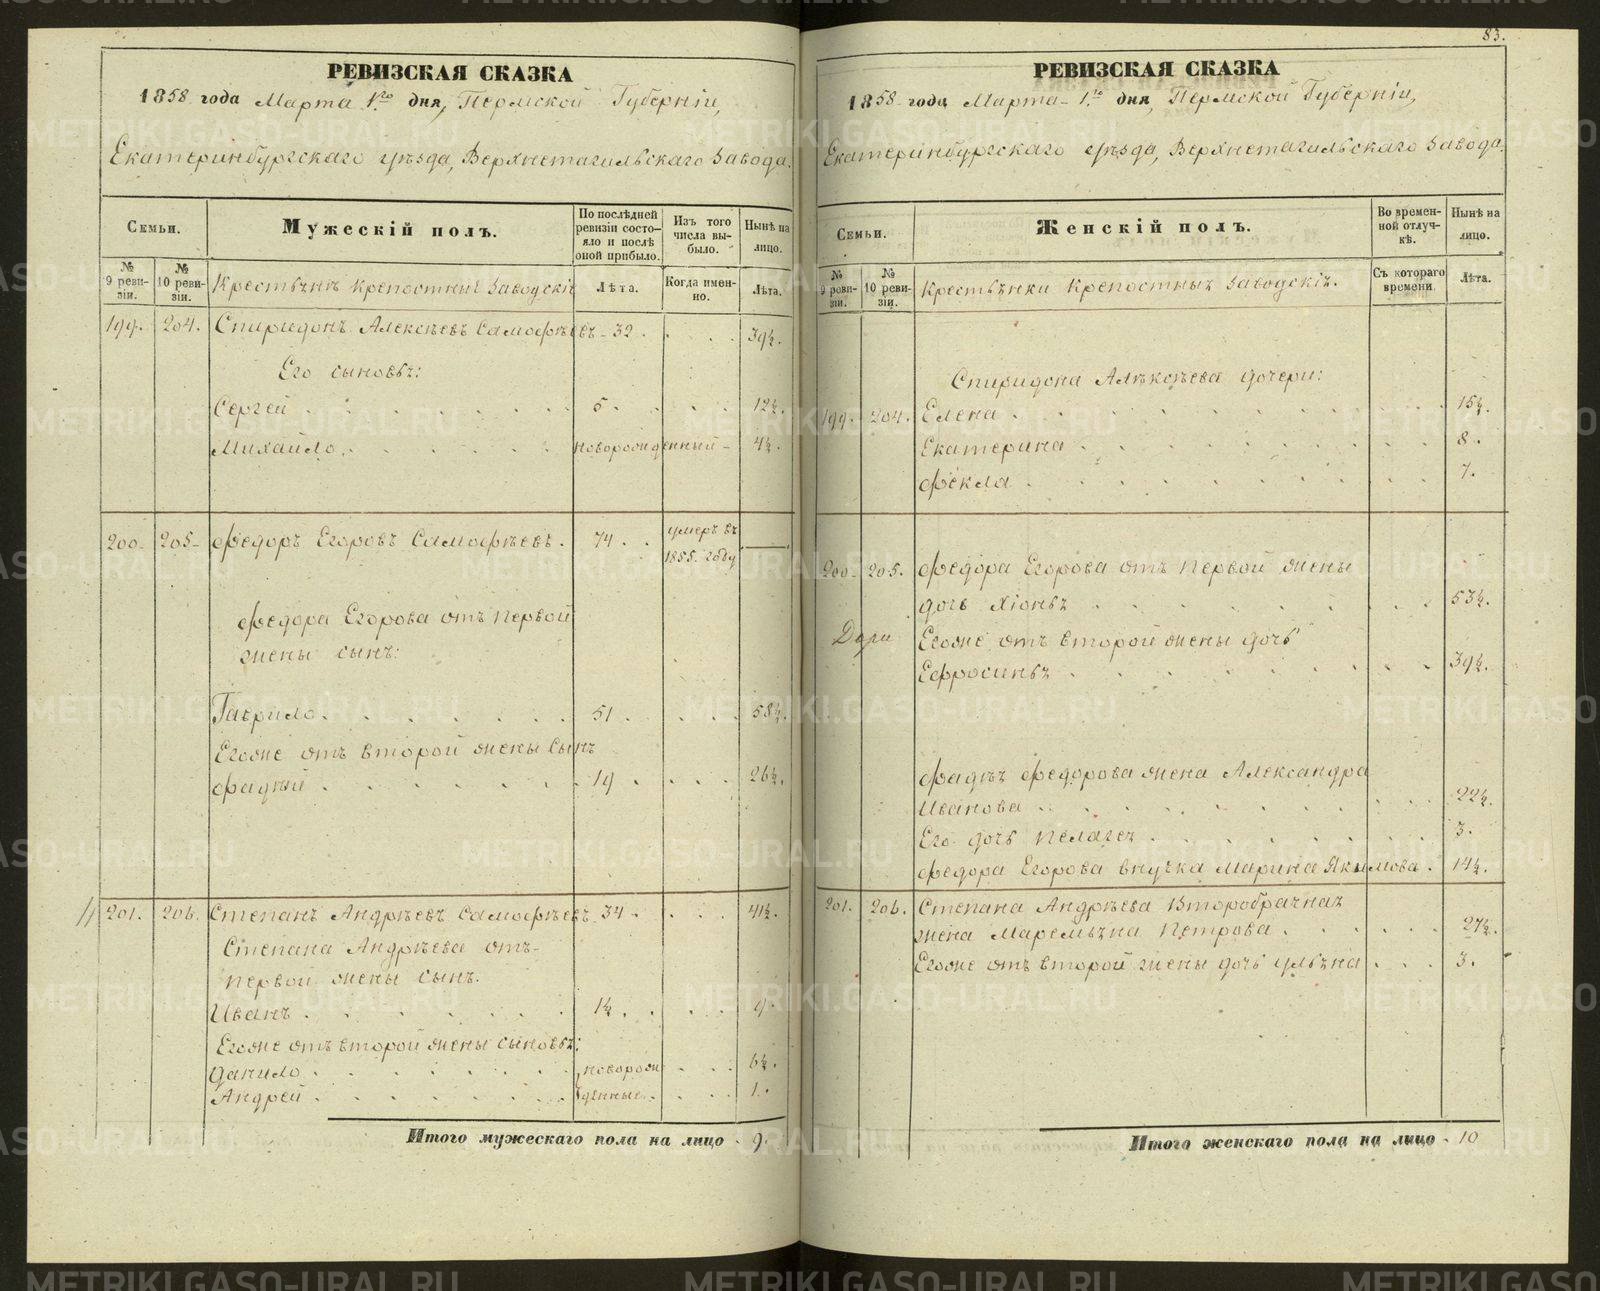 83.
РЕВИЗСКАЯ СКАЗКА
1858 года Марта 1го дня, Пермской Губерніи,
Екатеринбургскаго уѣзда, Верхнетагильскаго Завода.
Семьи.
Мужескій полъ.
По послѣдней ревизіи состояло и послѣ оной прибыло.
Изъ того числа выбыло.
Нынѣ на лицо.
№ 9 ревизіи.
№ 10 ревизіи.
Крестьянъ крепостныхъ Заводскихъ
Лѣта.
Когда именно.
Лѣта.
199. 204. Спиридонъ Алексѣевъ Самофѣевъ 32. 39½.
Его сыновья:
Сергей 5. 12½.
Михайло новорожденный 4½.
200. 205. Федоръ Егоровъ Самофѣевъ. 74. умеръ въ 1855. году
Федора Егорова отъ первой
жены сынъ:
Гаврило 51. 58½.
Егоже отъ второй жены сынъ
Фадѣй 19. 26½.
201. 206. Степанъ Андрѣевъ Самофѣевъ 34. 41½.
Степана Андрѣева отъ
первой жены сынъ.
Иванъ 1½. 9.
Егоже отъ второй жены сыновья:
Данило новорож 6½.
Андрей денные 1.
Итого мужескаго пола на лицо 9.
РЕВИЗСКАЯ СКАЗКА
1858 года Марта 1го дня, Пермской Губерніи,
Екатеринбургскаго уѣзда, Верхнетагильскаго Завода.
Семьи.
Женскій полъ.
Во временной отлучкѣ.
Нынѣ на лицо.
№ 9 ревизіи.
№ 10 ревизіи.
Крестьянки крепостныхъ Заводскіе.
Съ котораго времени.
Лѣта.
Спиридона Алѣксѣева дочери:
199. 204. Елена 15½.
Екатерина 8.
Фекла 7.
200. 205. Федора Егорова отъ первой жены
дочь Хіонья 53½.
Егоже отъ второй жены дочь
Ефросинья 39½.
Фадѣя Федорова жена Александра
Иванова 22½.
Его дочь Пелагея 3.
Федора Егорова внучка Марина Якимова. 14½.
201. 206. Степана Андрѣева Второбрачная
жена Маремьяна Петрова 27½.
Егоже отъ второй жены дочь Ульяна 3.
Итого женскаго пола на лицо 10
METRIKI.GASO-URAL.RU